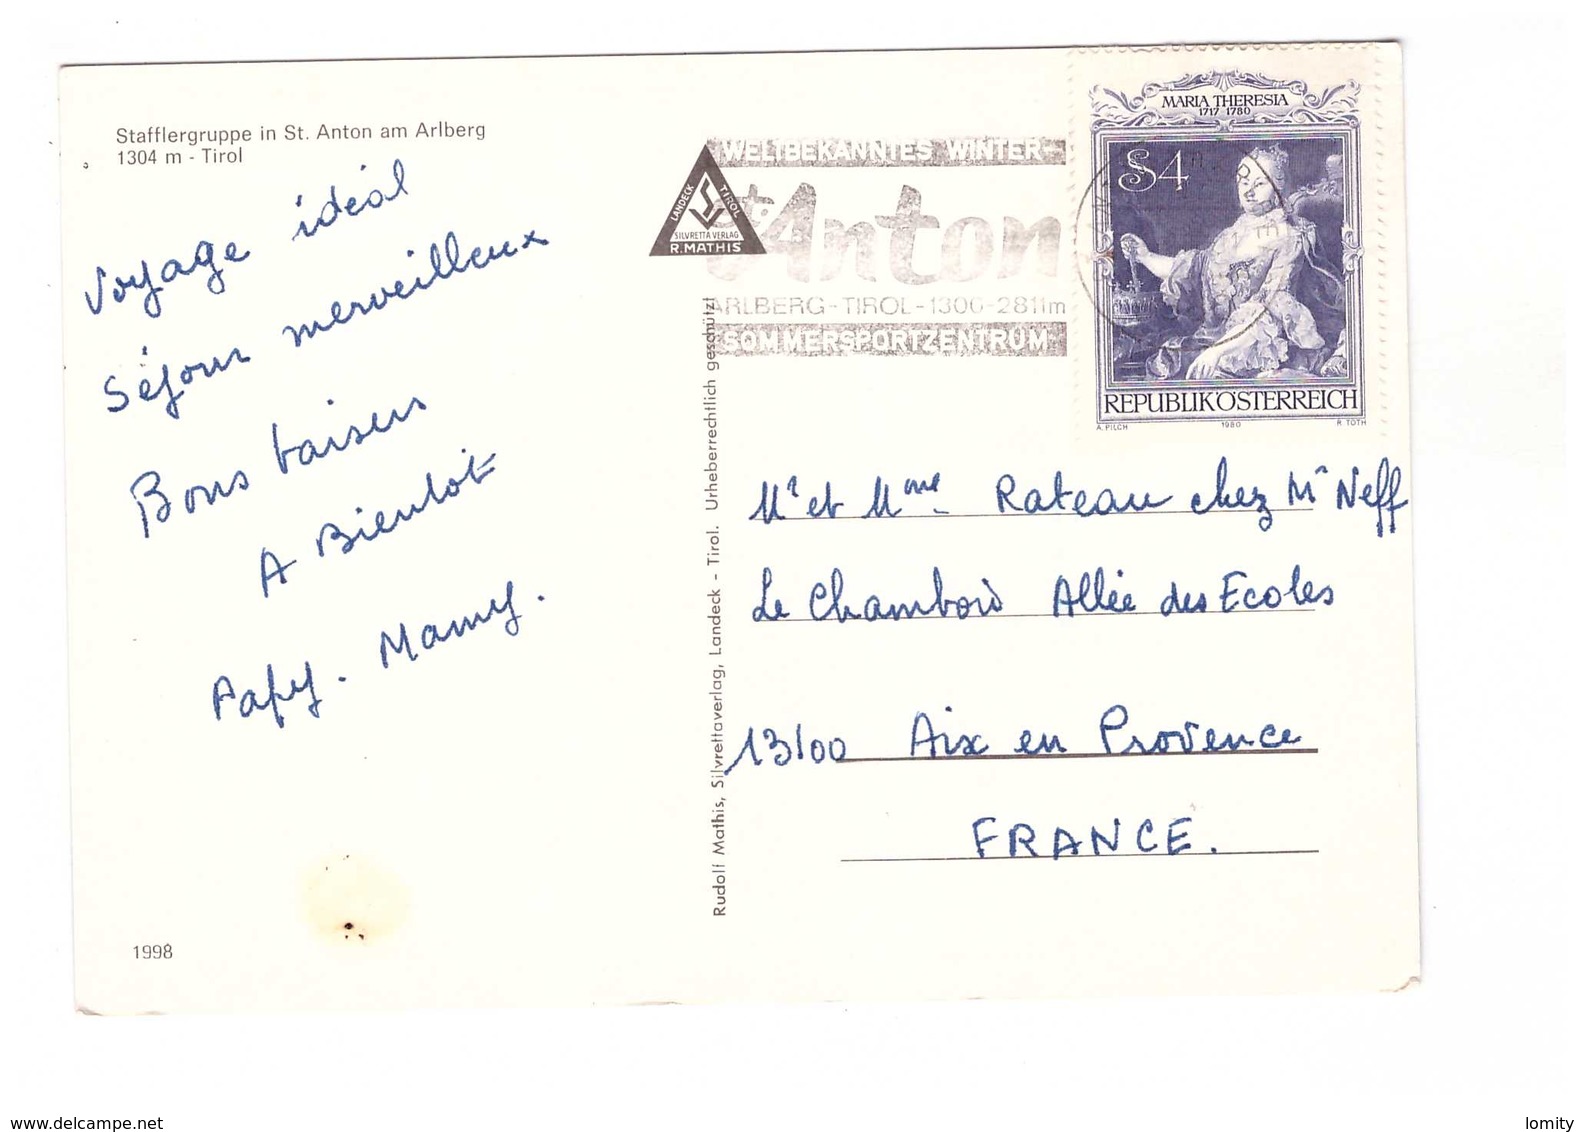 Stafflergruppe in St. Anton am Arlberg
1304 m - Tirol
Voyage idéal
Séjour merveilleux
Bons baisers
A Bientot
Papy. Mamy.
1998
Rudolf Mathis, Silvrettaverlag, Landeck - Tirol. Urheberrechtlich geschützt
LANDECK TIROL
SILVRETTA VERLAG
R. MATHIS
WELTBEKANNTES WINTER-
St. Anton
ARLBERG-TIROL-1306-2811m
SOMMERSPORTZENTRUM
MARIA THERESIA
1717 1780
S4
REPUBLIK ÖSTERREICH
A. PILCH 1980 R. TOTH
Mr et Mme Rateau chez Mr Neff
Le Chambord Allée des Ecoles
13100 Aix en Provence
FRANCE.
www.delcampe.net
lomity